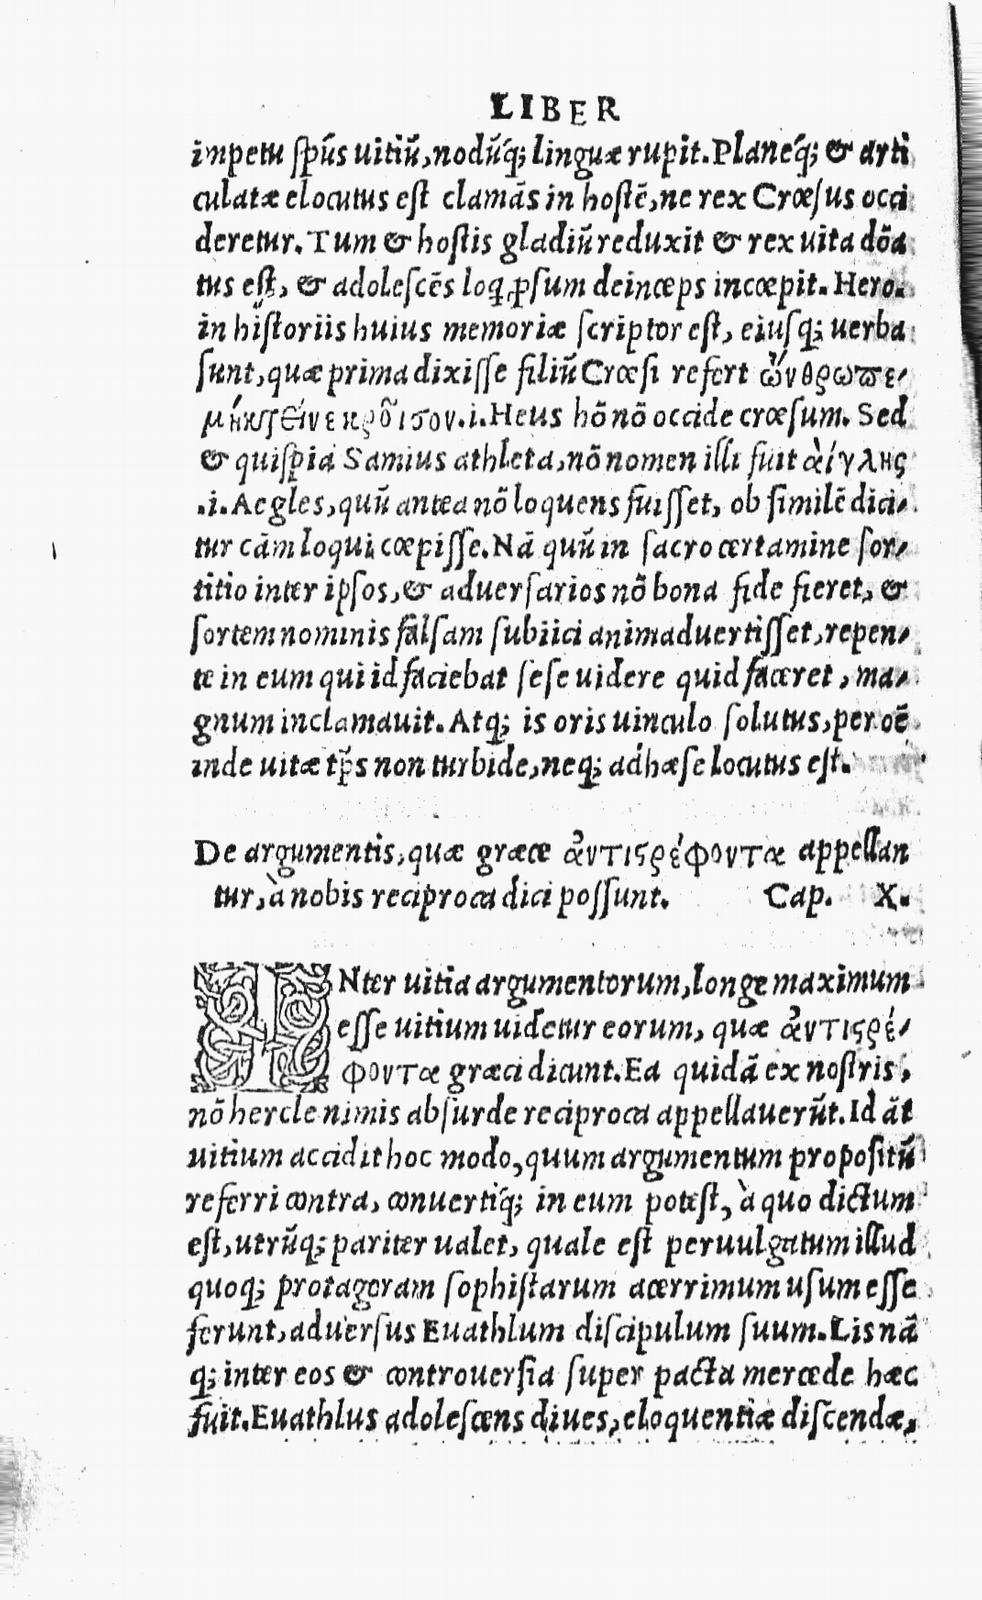 LIBER
impetu ſpũs uitiũ, nodũq́; linguæ rupit. Planeq́; & arti
culatæ elocutus eſt clamãs in hoſtẽ, ne rex Crœſus occi
deretur. Tum & hoſtis gladiũ reduxit & rex uita dõa
tus eſt, & adoleſcẽs loq̃ ꝓſum deincæps incœpit. Hero.
in hiſtoriis huius memoriæ ſcriptor eſt, eiuſq; uerba
ſunt, quæ prima dixiſſe filiũ Crœſi refert ὤνθρωπε,
μὴ κτεῖνε κροῖσον .i. Heus hõ nõ occide crœſum. Sed
& quiſpiã Samius athleta, nõ nomen illi fuit ἀίγλης
.i. Aegles, quũ antea nõ loquens fuiſſet, ob ſimilẽ dici,
tur cãm loqui cœpiſſe. Nã quũ in ſacro certamine ſor,
titio inter ipſos, & aduerſarios nõ bona fide fieret, &
ſortem nominis falſam ſubiici animaduertiſſet, repen,
te in eum qui id faciebat ſeſe uidere quid faceret, ma,
gnum inclamauit. Atq; is oris uinculo ſolutus, per oẽ
inde uitæ tp̃s non turbide, neq; adhæſe locutus eſt.
De argumentis, quæ græce ἀντιστρέφοντα appellan
tur, à nobis reciproca dici poſſunt. Cap. X.
INter uitia argumentorum, longe maximum
eſſe uitium uidetur eorum, quæ ἀντιστρέ,
φοντα græci dicunt. Ea quidã ex noſtris,
nõ hercle nimis abſurde reciproca appellauerũt. Id ãt
uitium accidit hoc modo, quum argumentum propoſitũ
referri contra, conuertiq́; in eum poteſt, à quo dictum
eſt, utrũq; pariter ualet, quale eſt peruulgatum illud
quoq; protagoram ſophiſtarum acerrimum uſum eſſe
ferunt, aduerſus Euathlum diſcipulum ſuum. Lis nã
q; inter eos & controuerſia ſuper pacta mercede hæc
fuit. Euathlus adoleſcens diues, eloquentiæ diſcendæ,